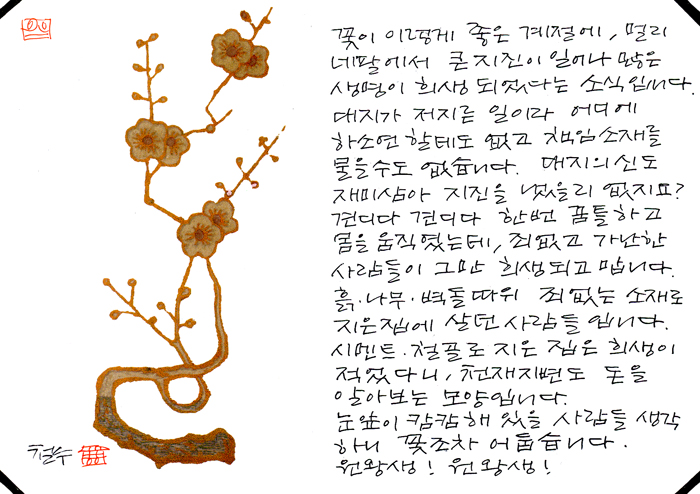 꽃이 이렇게 좋은 계절에, 멀리
네팔에서 큰 지진이 일어나 많은
생명이 희생 되었다는 소식입니다.
대지가 저지른 일이라 어디에
하소연 할데도 없고 책임소재를
물을수도 없습니다. 대지의 신도
재미삼아 지진을 냈을리 없지요?
견디다 견디다 한번 꿈틀하고
몸을 움직였는데, 죄없고 가난한
사람들이 그만 희생되고 맙니다.
흙·나무·벽돌따위 죄 없는 소재로
지은집에 살던 사람들입니다.
시멘트·철골로 지은 집은 희생이
적었다니, 천재지변도 돈을
알아보는 모양입니다.
눈앞이 캄캄해 있을 사람들 생각
하니 꽃조차 어둡습니다.
원왕생! 원왕생!
철수